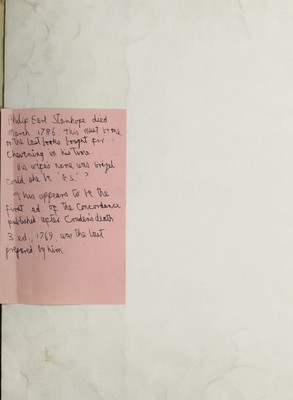 Philip Earl Stanhope died
March 1786. This must be one
of the last books bought for
Chevening in his time.
His wife's name was Grizel
could she be 'G.S.'?
This appears to be the
first ed. of the Concordance
published after Cruden's death
3 ed., 1769, was the last
prepared by him